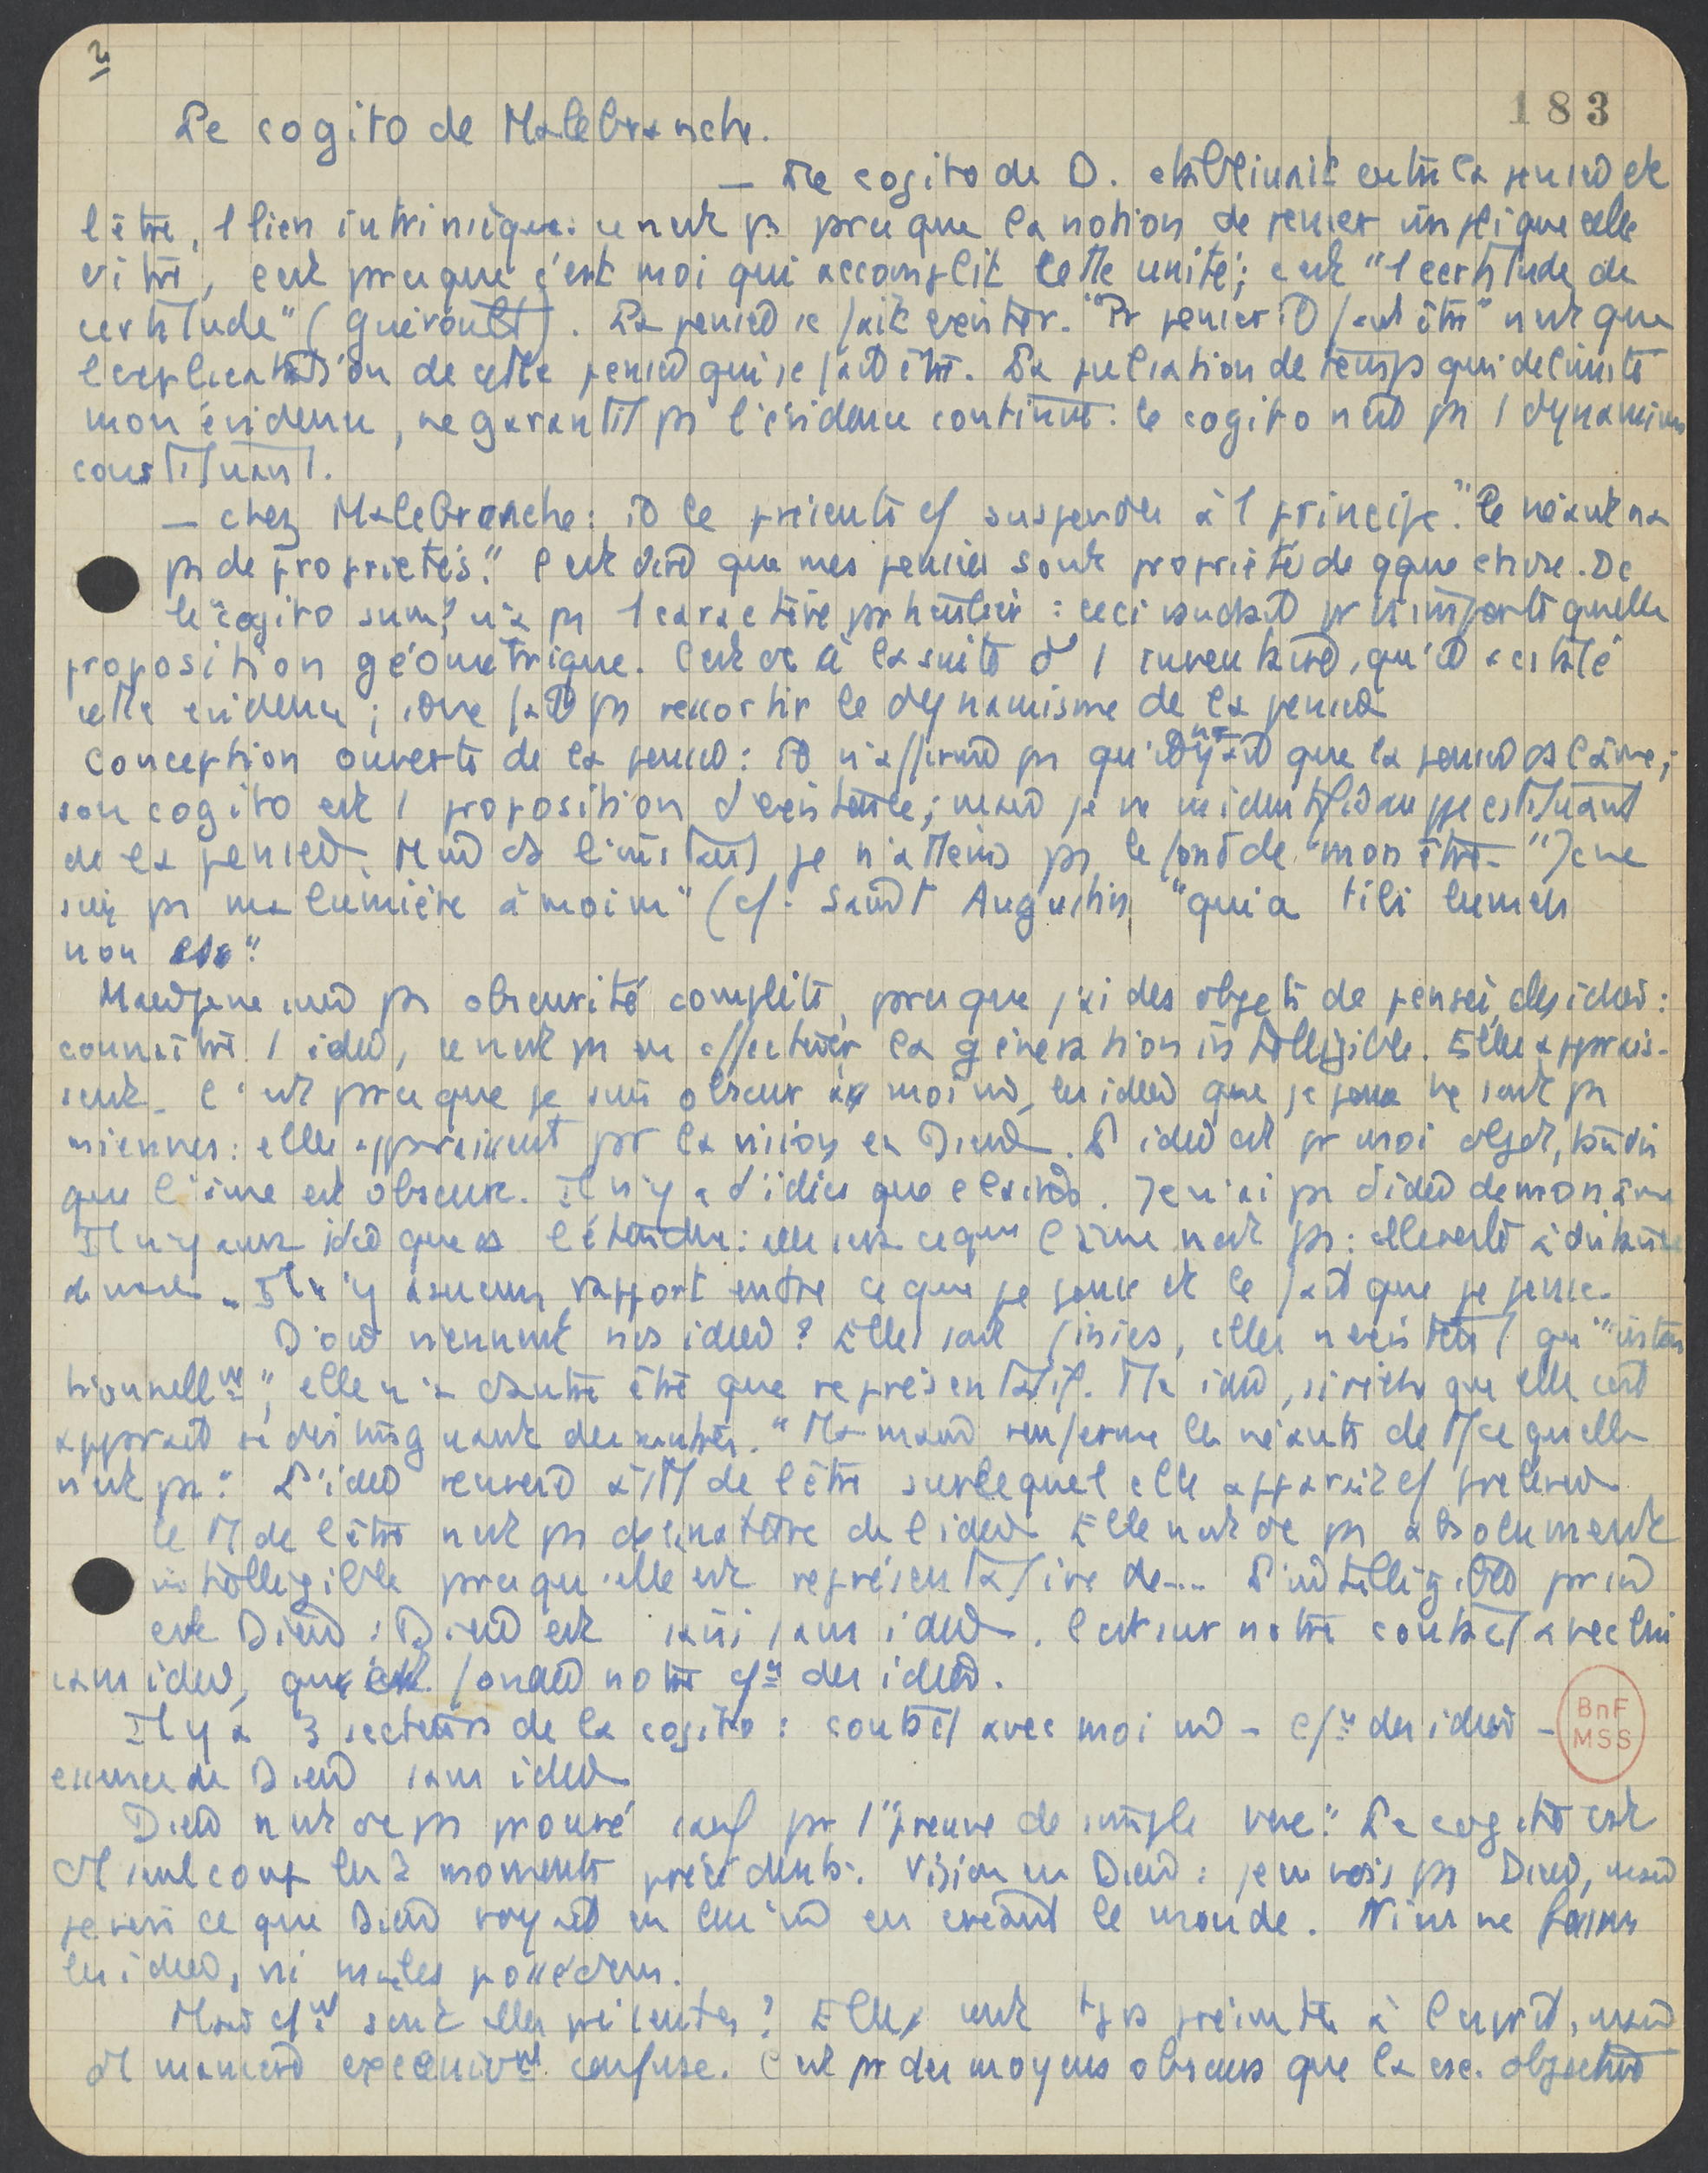 2
183
Le cogito de Malebranche.
— Le cogito de D. établissait entre la pensée et
l'être, 1 lien intrinsèque: ce n'est ps prce que la notion de penser implique celle
d'être, c'est prce que c'est moi qui accomplit cette unité; c'est "1 certitude de
certitude" (Guéroult). La pensée se fait exister. "Pr penser il faut être" n'est que
l'explicitation de cette pensée qui se fait être. La pulsation de temps qui délimite
mon évidence, ne garantit ps l'évidence continue: le cogito n'est ps 1 dynamisme
constituant.
— chez Malebranche: il le présente cf suspendu à 1 principe "le néant n'a
ps de propriétés". C'est dire que mes pensées sont propriété de qque chose. Dc
le "cogito sum" n'a ps 1 caractère particulier: ceci vaudrait pr n'importe quelle
proposition géométrique. C'est dc à la suite d' 1 inventaire, qu'il a constaté
cette évidence; il ne fait ps ressortir le dynamisme de la pensée
Conception ouverte de la pensée: il n'affirme ps qu'il n'y ait que la pensée ds l'âme;
son cogito est 1 proposition d'existence; mais je ne m'identifie au constituant
de la pensée. Mais ds l'instant je n'atteins ps le fond de mon être. "Je ne
suis ps ma lumière à moi m" (cf. Saint Augustin "quia tibi lumen
non es".
Mais je ne suis ps obscurité complète, prce que j'ai des objets de pensée, des idées:
connaître 1 idée, ce n'est ps en effectuer la génération intelligible. Elles apparais-
sent. C'est prce que je suis obscur à moi m, les idées que je pense ne sont ps
miennes: elles apparaissent pr la vision en Dieu. L'idée est pr moi objet, tandis
que l'âme est obscure. Il n'y a d'idées que claires. Je n'ai ps d'idée de mon âme
Il n'y aura idée que ds l'étendue: elle sera ce que l'âme n'est ps: elle reste à distance
de nous. Il n'y a aucun rapport entre ce que je pense et le fait que je pense.
D'où viennent nos idées? Elles sont finies, elles n'existent qu' "inten
tionnellnt", elle n'a d'autre être que représentatif. Ma idée, si riche que elle soit
apparaît se distinguant des autres. "Ma main renferme les néants de Tt ce qu'elle
n'est ps". L'idée renvoie à Tt de l'être sur lequel elle apparaît cf prélevée
le Tt de l'être n'est ps de la nature de l'idée Elle n'est dc ps absolument
intelligible prce qu'elle est représentative de... L'intelligible pr soi
est Dieu: Dieu est saisi sans idée. C'est sur notre contact avec lui
sans idée, que est fondée notre cfn des idées.
Il y a 3 secteurs de la cogito: contact avec moi m — cfn des idées —
essence de Dieu sans idée
Dieu n'est dc ps prouvé sauf pr 1 "preuve de simple vue". Le cogito est
d'1 seul coup les 2 moments précédents. Vision en Dieu: je ne vois ps Dieu, mais
je vois ce que Dieu voyait en lui m en créant le monde. Ni ns ne faisons
les idées, ni ns les possédons.
Mais cfnt sont elles présentes? Elles sont tjrs présentes à l'esprit, mais
d'1 manière excessivnt confuse. C'est pr des moyens obscurs que la csc. objective
BnF
MSS